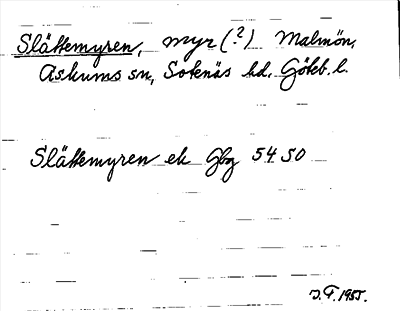 Slättemyren, myr (?) Malmön,
Askums sn, Sotenäs hd, Göteb. l.
Slättemyren ek Gbg 54 50
J.F. 1955.